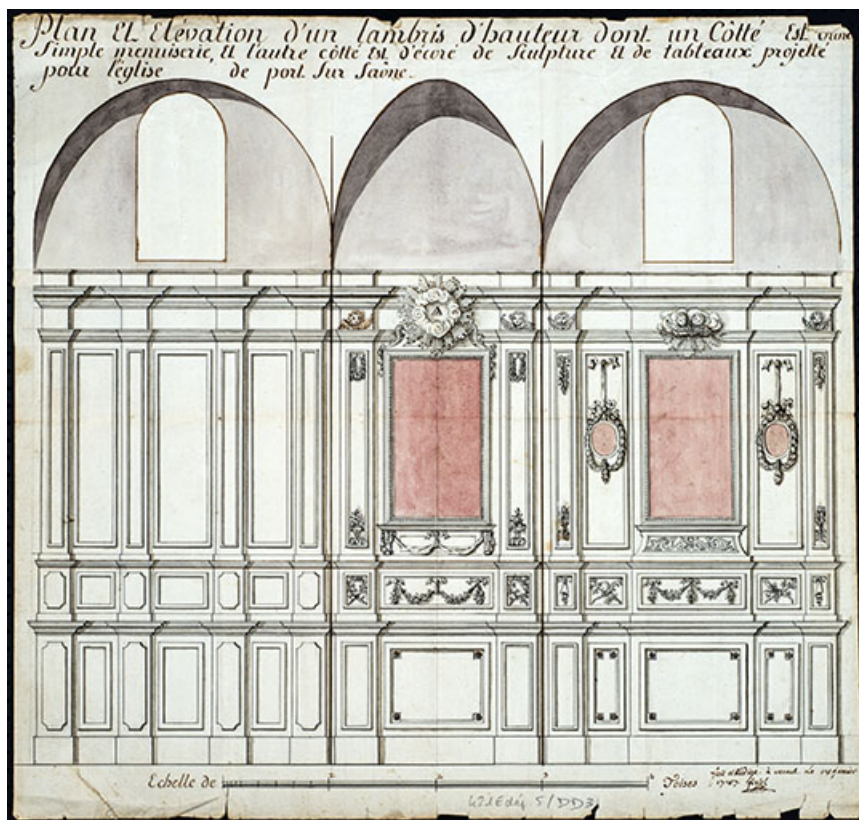 Plan Et Elévation d'un lambris d'hauteur dont un Côtté Est
Simple menuiserie, Et l'autre côtté Est d'écoré de Sculpture Et de tableaux projetté
pour l'église de port Sur Saône.
Echelle de Toises
421Edép 5/DD3